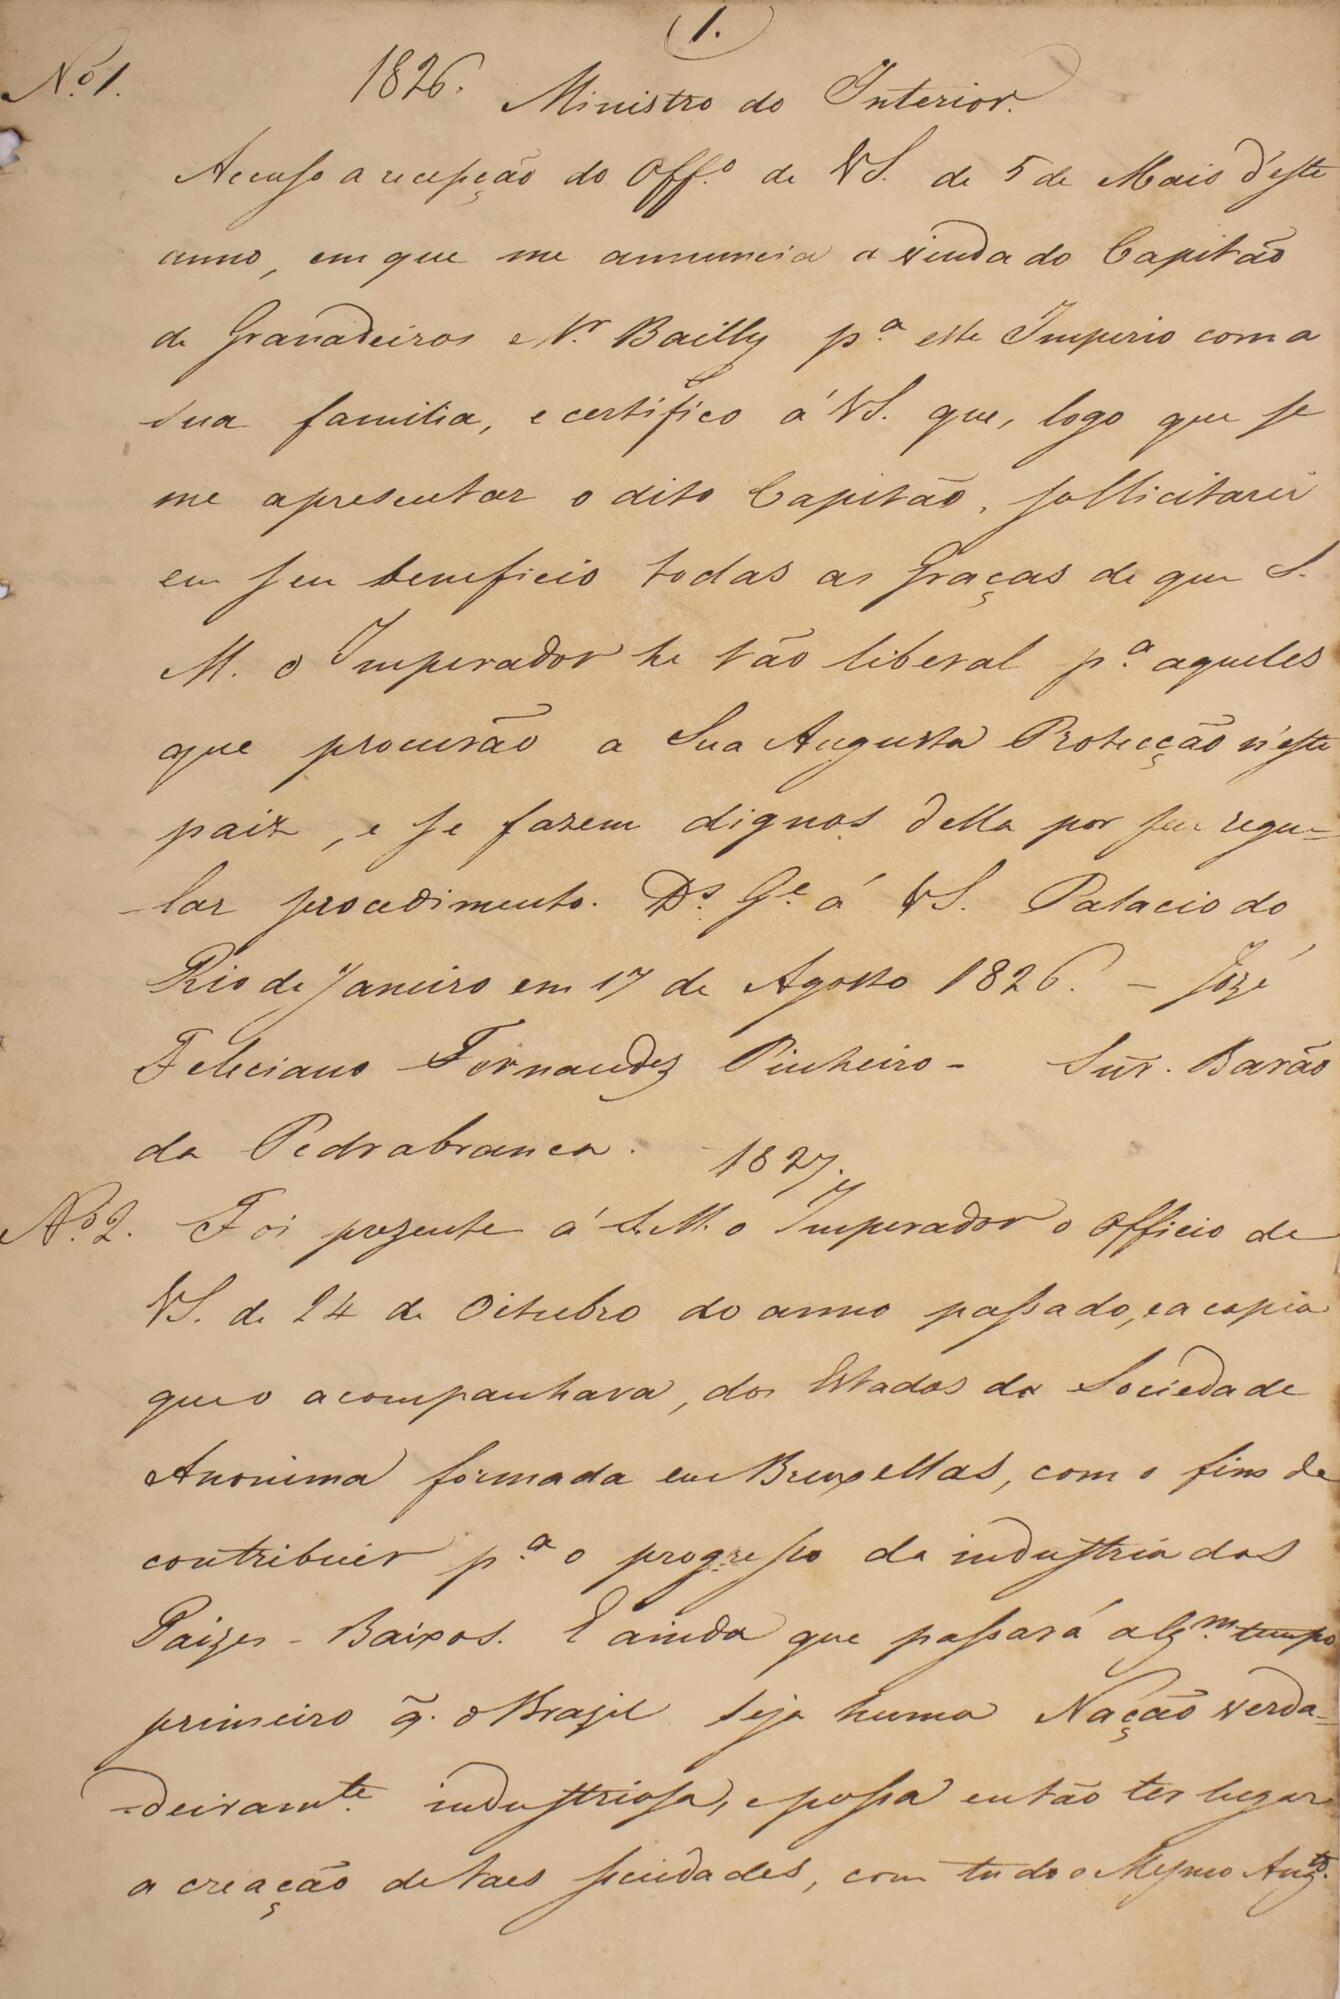 1.
Nº 1. 1826. Ministro do Interior.
Accuso a recepção do Off.º de VS. de 5 de Maio d'este
anno, em que me annuncia a vinda do Capitão
de Granadeiros Mr. Bailly p.ª este Imperio com a
sua familia, e certifico á VS. que, logo que se
me apresentar o dito Capitão, sollicitarei
em seu beneficio todas as Graças de que S.
M. o Imperador he tão liberal p.ª aqueles
que procurão a Sua Augusta Protecção n'este
paiz, e se fazem dignos della por seu regu-
-lar procedimento. Ds. Ge. á VS. Palacio do
Rio de Janeiro em 17 de Agosto 1826. - Jozé
Feleciano Fernandez Pinheiro - Snr. Barão
da Pedrabranca.
1827.
Nº 2. Foi prezente á S.M. o Imperador o Officio de
VS. de 24 de Oitubro do anno passado, e a copia
que o acompanhava, dos Estados da Sociedade
Anonima formada em Bruxellas, com o fim de
contribuir p.ª o progresso da industria dos
Paizes-Baixos. E ainda que passará alg.m tempo
primeiro q̃. o Brazil seja huma Nação verda-
-deiram.te industriosa, e possa então ter lugar
a creação de taes sociedades, com tudo o Mesmo Aug.to